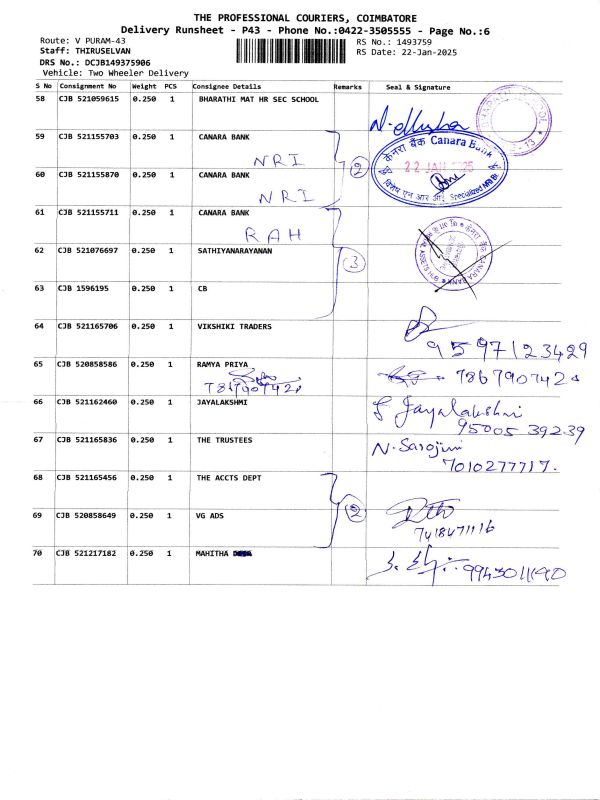 THE PROFESSIONAL COURIERS, COIMBATORE
Delivery Runsheet - P43 - Phone No.:0422-3505555 - Page No.:6
Route: V PURAM-43
RS No.: 1493759
Staff: THIRUSELVAN
RS Date: 22-Jan-2025
DRS No.: DCJB149375906
Vehicle: Two Wheeler Delivery
S No Consignment No Weight PCS Consignee Details Remarks Seal & Signature
58 CJB 521059615 0.250 1 BHARATHI MAT HR SEC SCHOOL
59 CJB 521155703 0.250 1 CANARA BANK
NRI
2
केनरा बैंक Canara Bank
22 JAN 2025
Specialized NRI Br.
60 CJB 521155870 0.250 1 CANARA BANK
NRI
61 CJB 521155711 0.250 1 CANARA BANK
RAH
3
CANARA BANK
62 CJB 521076697 0.250 1 SATHIYANARAYANAN
63 CJB 1596195 0.250 1 CB
64 CJB 521165706 0.250 1 VIKSHIKI TRADERS
9597123429
65 CJB 520858586 0.250 1 RAMYA PRIYA
7867907420
7867907420
66 CJB 521162460 0.250 1 JAYALAKSHMI
Jayalakshmi
95005 39239
67 CJB 521165836 0.250 1 THE TRUSTEES
N. Sarojini
7010277717.
68 CJB 521165456 0.250 1 THE ACCTS DEPT
2
69 CJB 520858649 0.250 1 VG ADS
7418471116
70 CJB 521217182 0.250 1 MAHITHA
9943011190